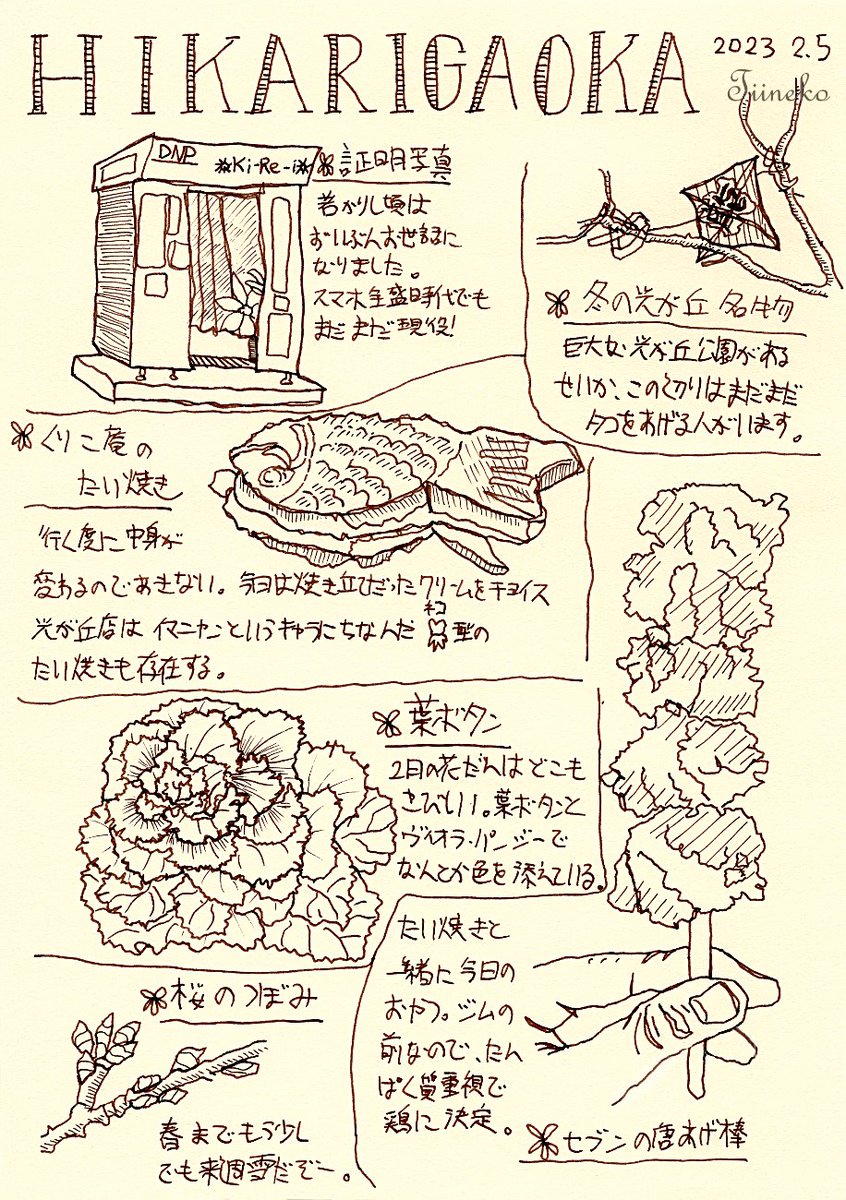 HIKARIGAOKA
2023 2.5
Tiineko
DNP
Ki-Re-i
証明写真
若かりし頃は
ずいぶんお世話に
なりました。
スマホ全盛時代でも
まだまだ現役!
冬の光が丘名物
巨大な光が丘公園がある
せいか、この辺りはまだまだ
タコをあげる人がいます。
くりこ庵の
たい焼き
行く度に中身が
変わるのであきない。今日は焼き立てだったクリームをチョイス
光が丘店はイマニャンというキャラにちなんだ ネコ型の
たい焼きも存在する。
葉ボタン
2月の花だんはどこも
さびしい。葉ボタンと
ヴィオラ・パンジーで
なんとか色を添えている。
桜のつぼみ
春までもう少し
でも来週雪だぞー。
たい焼きと
一緒に今日の
おやつ。ジムの
前なので、たん
ぱく質重視で
鶏に決定。
セブンの唐あげ棒